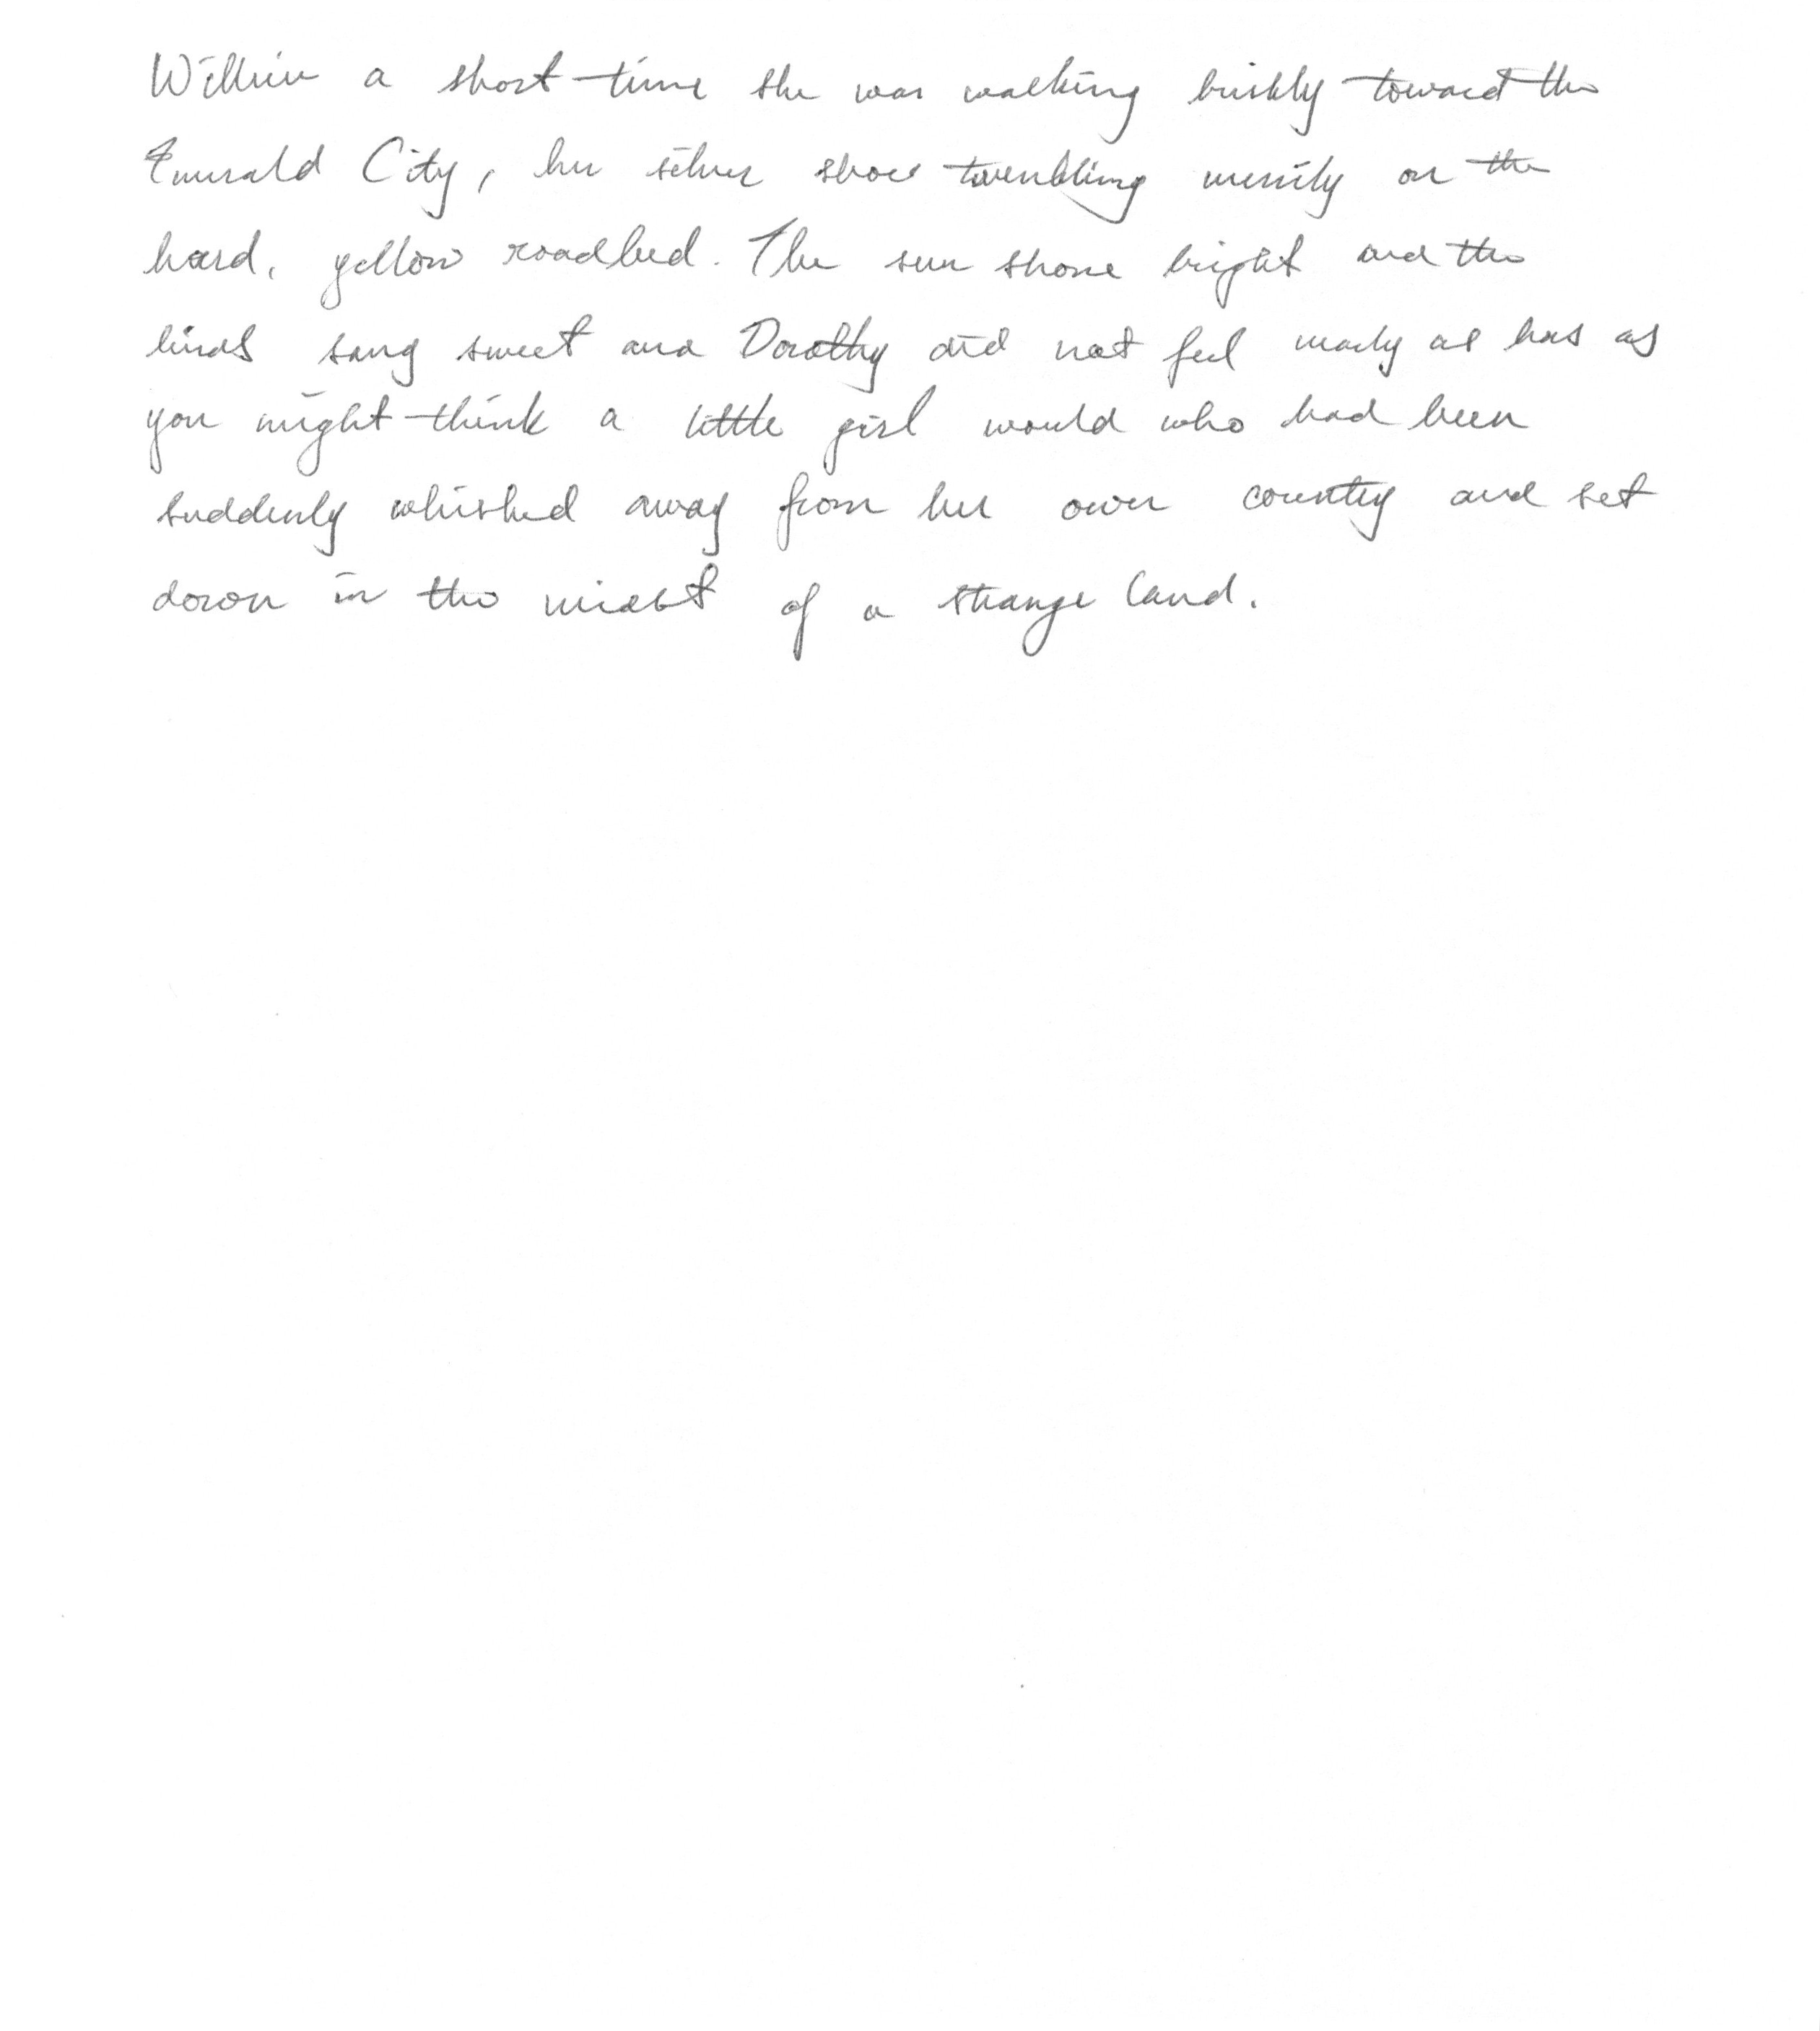 Within a short time she was walking briskly toward the
Emerald City, her silver shoes twinkling merrily on the
hard, yellow roadbed. The sun shone bright and the
birds sang sweet and Dorothy did not feel nearly as bad as
you might think a little girl would who had been
suddenly whisked away from her own country and set
down in the midst of a strange land.